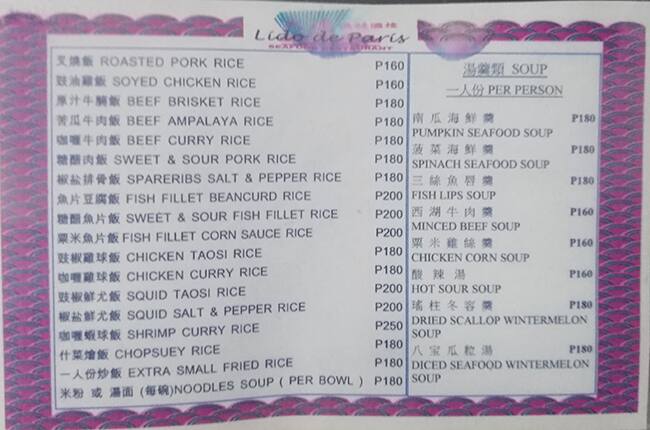 Lido de Paris
SEAFOOD RESTAURANT
叉燒飯 ROASTED PORK RICE P160
豉油雞飯 SOYED CHICKEN RICE P160
原汁牛腩飯 BEEF BRISKET RICE P180
苦瓜牛肉飯 BEEF AMPALAYA RICE P180
咖喱牛肉飯 BEEF CURRY RICE P180
糖醋肉飯 SWEET & SOUR PORK RICE P180
椒盐排骨飯 SPARERIBS SALT & PEPPER RICE P180
魚片豆腐飯 FISH FILLET BEANCURD RICE P200
糖醋魚片飯 SWEET & SOUR FISH FILLET RICE P200
粟米魚片飯 FISH FILLET CORN SAUCE RICE P200
豉椒雞球飯 CHICKEN TAOSI RICE P180
咖喱雞球飯 CHICKEN CURRY RICE P180
豉椒鮮尤飯 SQUID TAOSI RICE P200
椒盐鮮尤飯 SQUID SALT & PEPPER RICE P200
咖喱蝦球飯 SHRIMP CURRY RICE P250
什菜燴飯 CHOPSUEY RICE P180
一人份炒飯 EXTRA SMALL FRIED RICE P180
米粉 或 湯面 (每碗)NOODLES SOUP ( PER BOWL ) P180
湯羹類 SOUP
一人份 PER PERSON
南瓜海鮮羹 P180
PUMPKIN SEAFOOD SOUP
菠菜海鮮羹 P180
SPINACH SEAFOOD SOUP
三絲魚唇羹 P180
FISH LIPS SOUP
西湖牛肉羹 P160
MINCED BEEF SOUP
粟米雞絲羹 P160
CHICKEN CORN SOUP
酸辣湯 P160
HOT SOUR SOUP
瑤柱冬容羹 P180
DRIED SCALLOP WINTERMELON
SOUP
八宝瓜粒湯 P180
DICED SEAFOOD WINTERMELON
SOUP